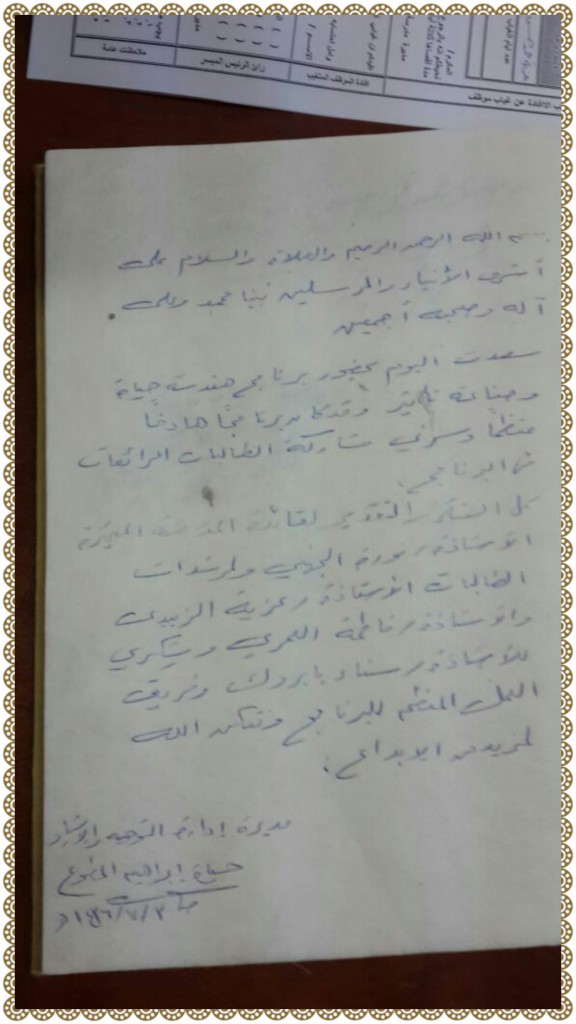 ب الافادة عن غياب موظف
افادة الموظف المتغيب
رأي الرئيس المباشر
ملاحظات عامة
بسم الله الرحمن الرحيم والصلاة والسلام على
أشرف الأنبياء والمرسلين نبينا محمد وعلى
آله وصحبه أجمعين
سعدت اليوم بحضور برنامج هندسة حياة
وصناعة تأثير وقد كان برنامجًا هادفًا
منظمًا وسرني مشاركة الطالبات الرائعات
في البرنامج.
كل الشكر والتقدير لقائدة المدرسة المميزة
الأستاذة / نورة الجهني ولمرشدات
الطالبات الأستاذة / عزيزة الزبيدي
والأستاذة / فاطمة العمري وشكري
للأستاذة / سناء بابروك وفريق
العمل المنظم للبرنامج ونسأل الله
لمزيد من الإبداع.
مديرة إدارة التوجيه والإرشاد
إبراهيم